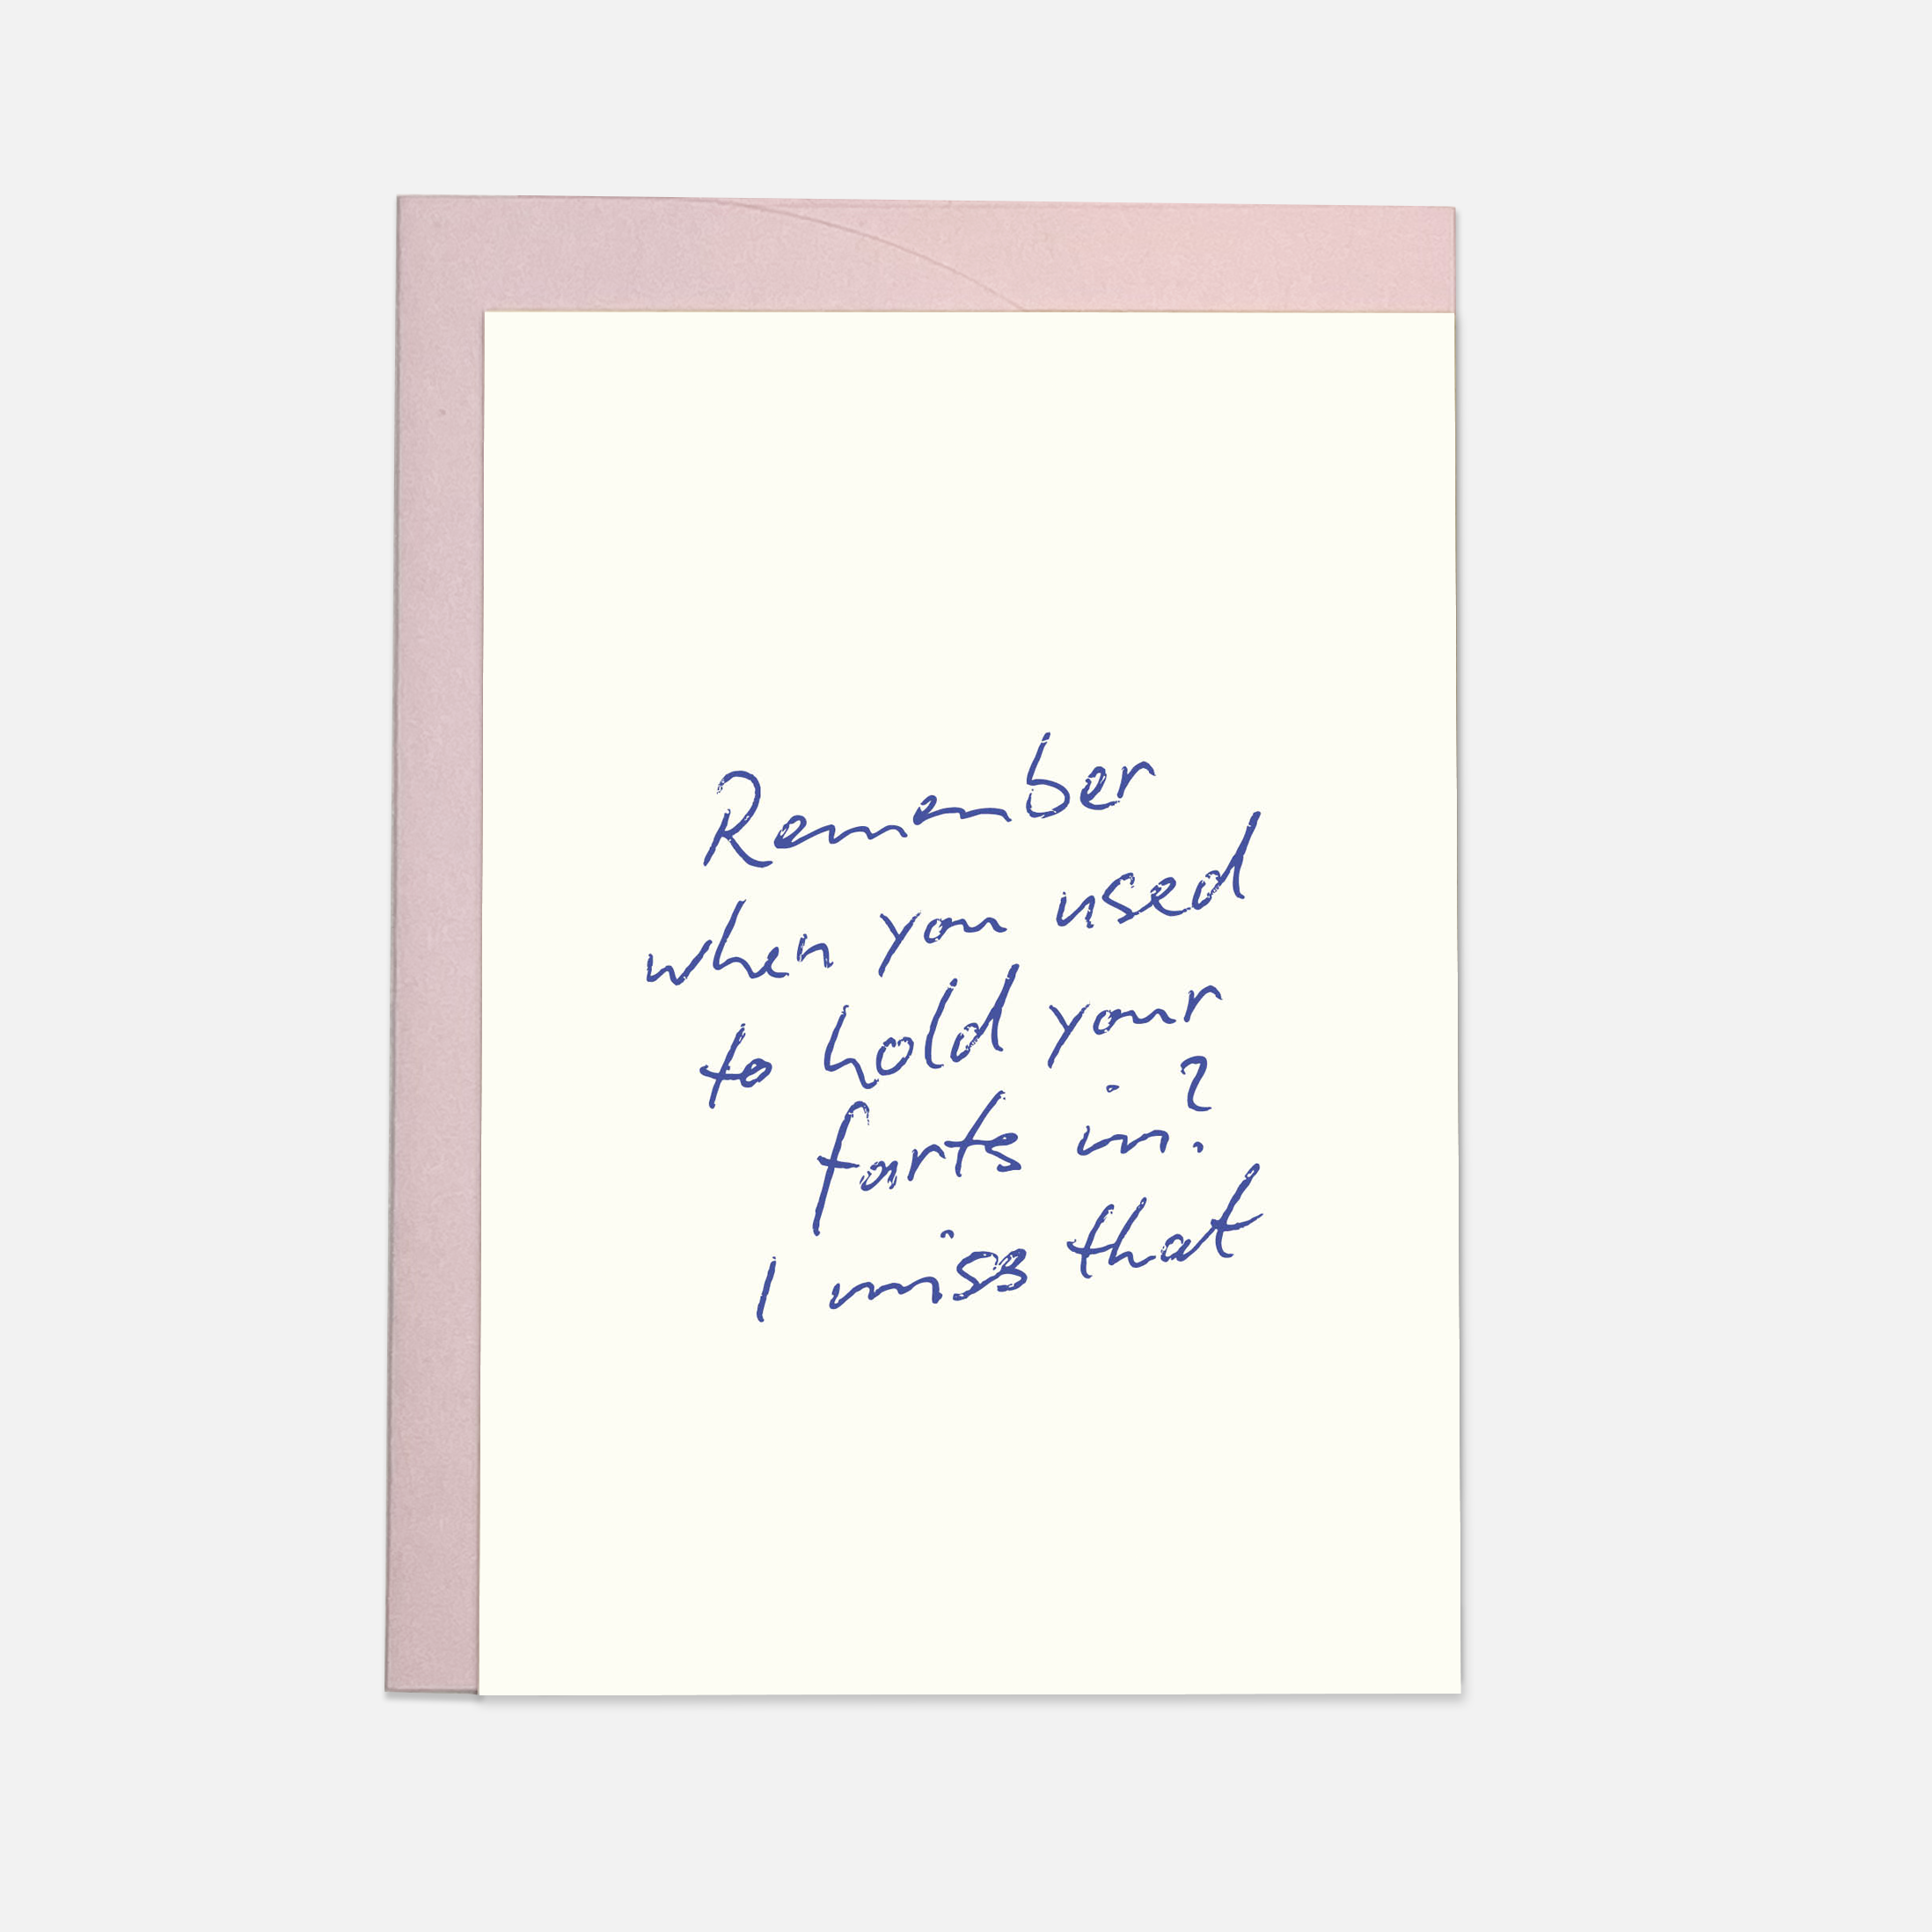 Remember
when you used
to hold your
farts in?
I miss that